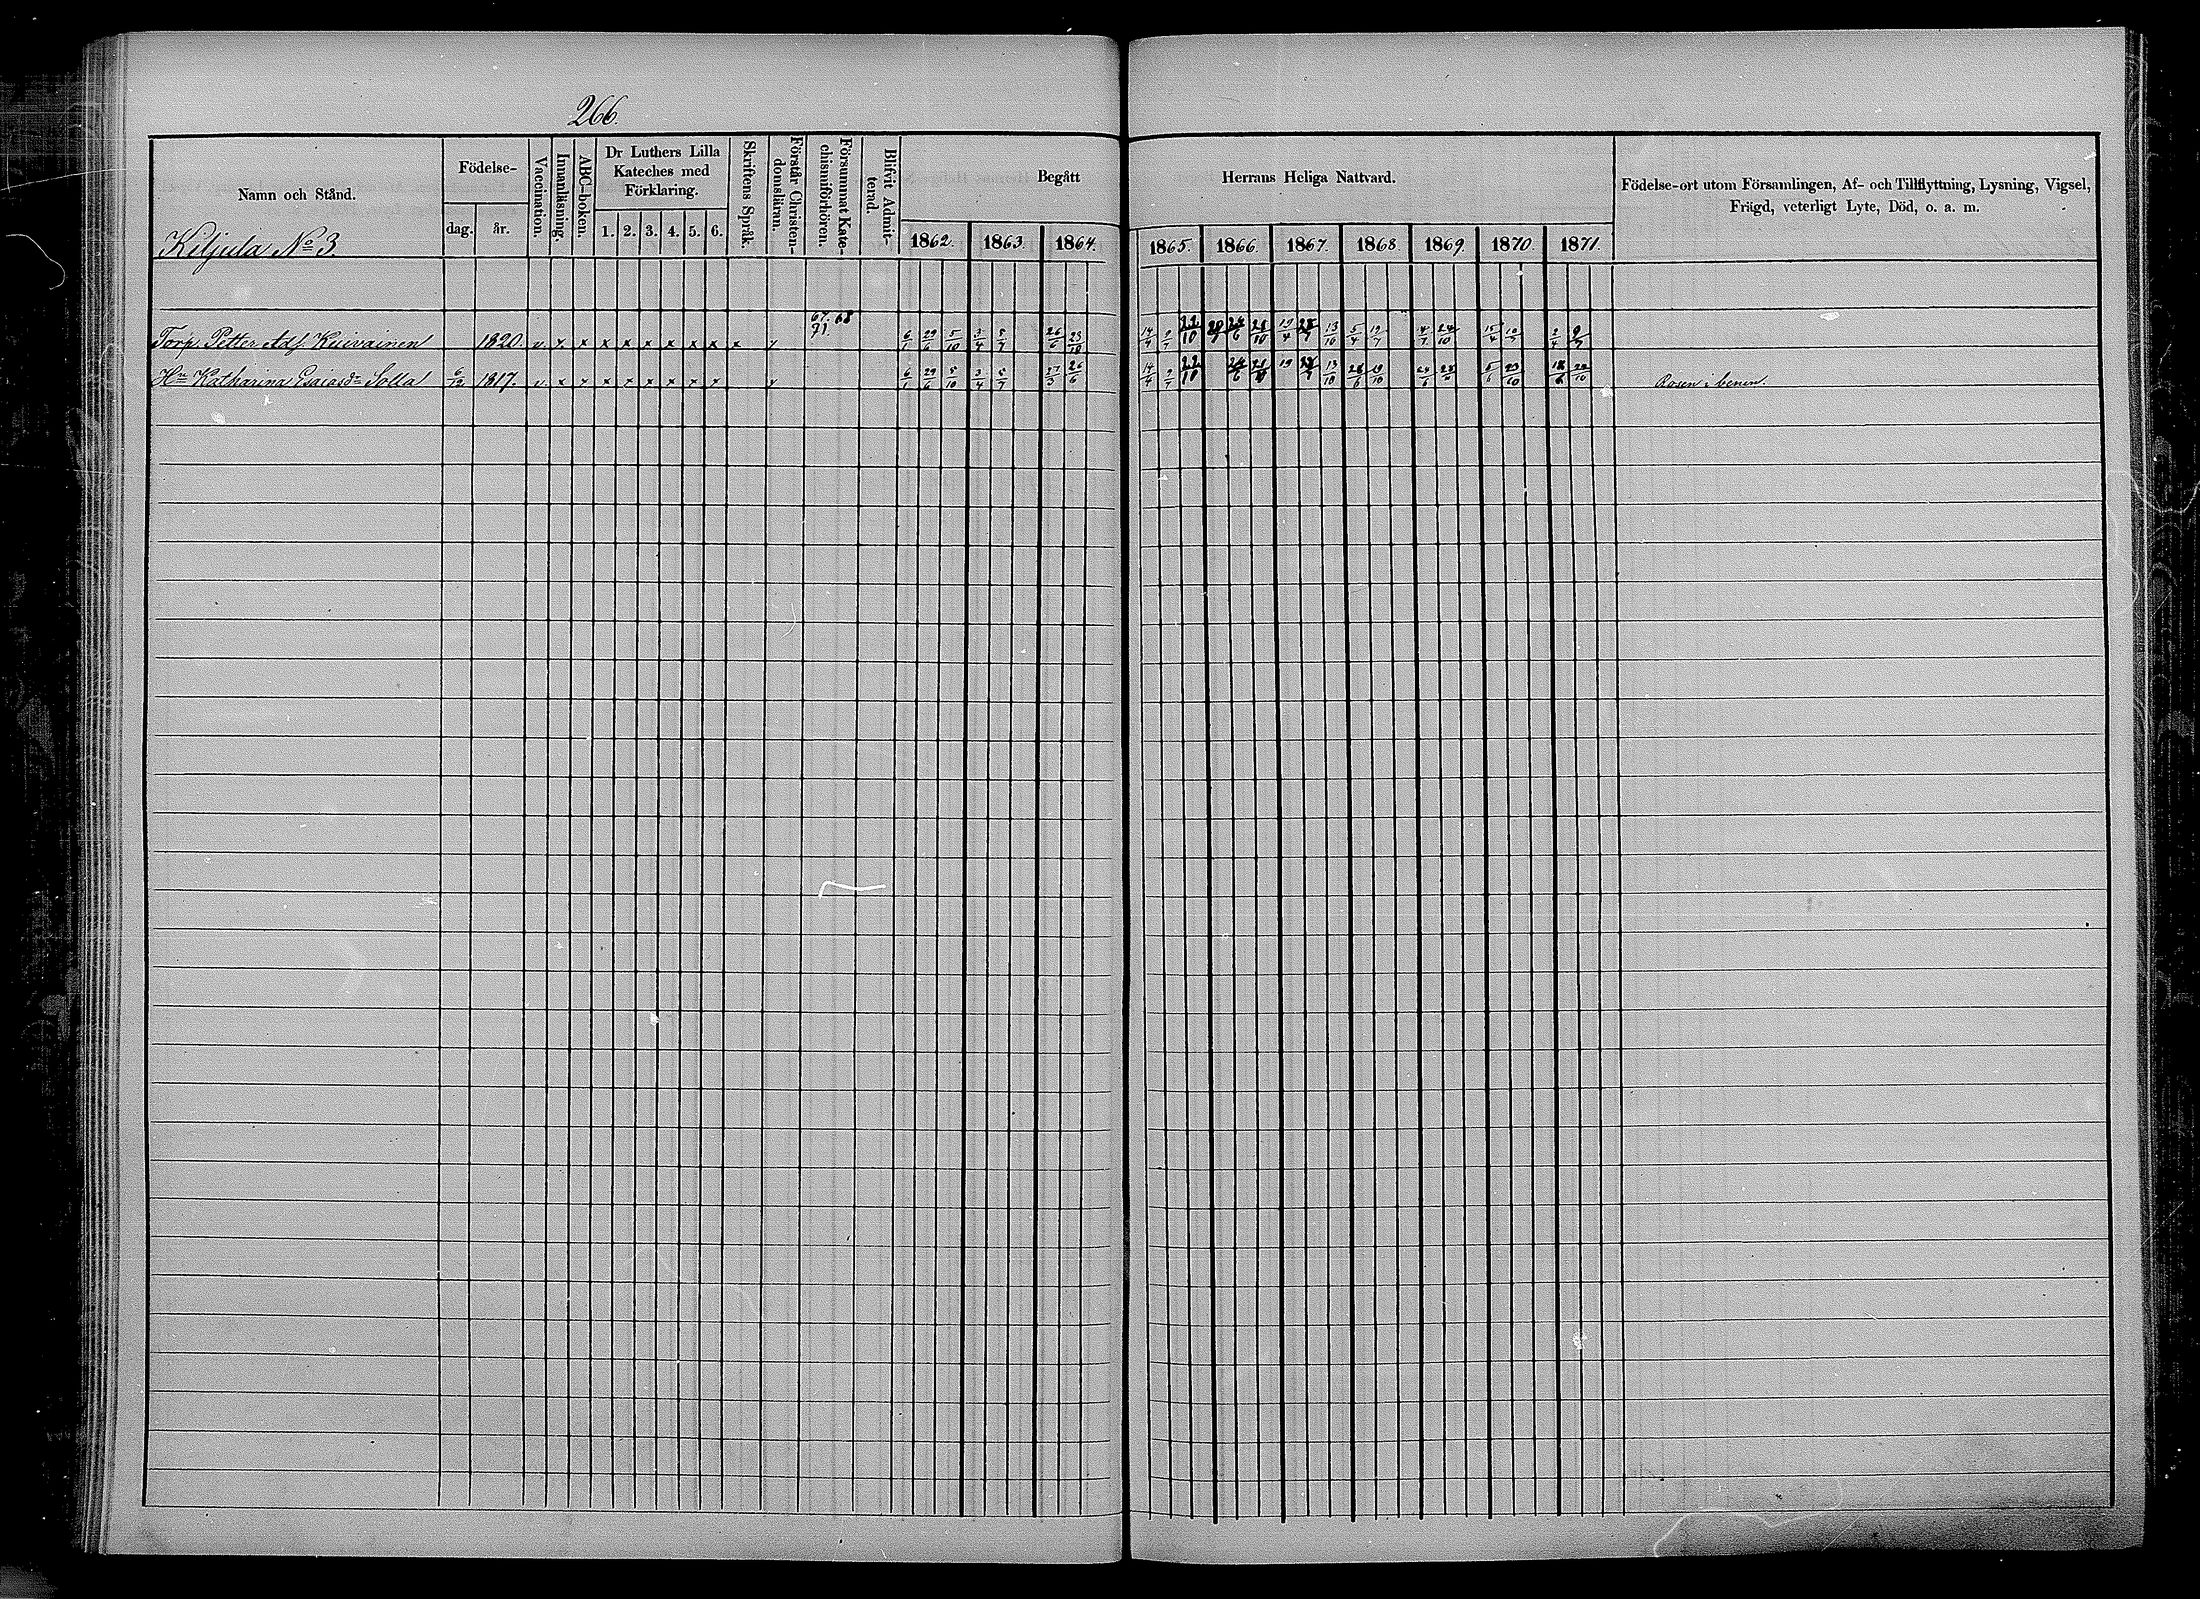 266.
Namn och Stånd.
Födelse-
dag. år.
Vaccination.
Innanläsning.
ABC-boken.
Dr Luthers Lilla
Kateches med
Förklaring.
1. 2. 3. 4. 5. 6.
Skriftens Språk.
Förstår Christen-
domsläran.
Försummat Kate-
chismiförhören.
Blifvit Admit-
terad.
Begått
Herrans Heliga Nattvard.
1862. 1863. 1864.
1865. 1866. 1867. 1868. 1869. 1870. 1871.
Födelse-ort utom Församlingen, Af- och Tillflyttning, Lysning, Vigsel,
Frägd, veterligt Lyte, Död, o. a. m.
Kiljula No 3.
67. 68
71.
Torp. Petter Adf. Kuivainen 1820. v x x x x x x x x x x 6/1 29/6 5/10 3/4 5/7 26/6 23/10 14/4 9/7 22/10 24/6 28/10 19/4 28/7 13/10 5/4 19/7 14/7 24/10 15/4 10/7 2/4 9/7
Hu Katharina Esaiasdr Solla 6/12 1817. v x x x x x x x x x 6/1 29/6 5/10 3/4 5/7 27/3 26/6 14/4 9/7 22/10 24/6 28/10 19 28/7 13/10 28/6 18/10 24/6 5/6 23/10 18/6 22/10 Rosen i benen.